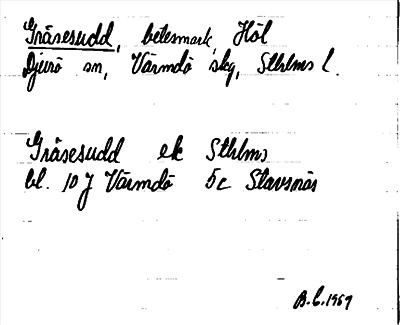 Gråsesudd, betesmark, Höl
Djurö sn, Värmdö skg, Sthlms l.
Gråsesudd ek Sthlms
bl. 10 J Värmdö 5c Stavsnäs
B.C. 1967